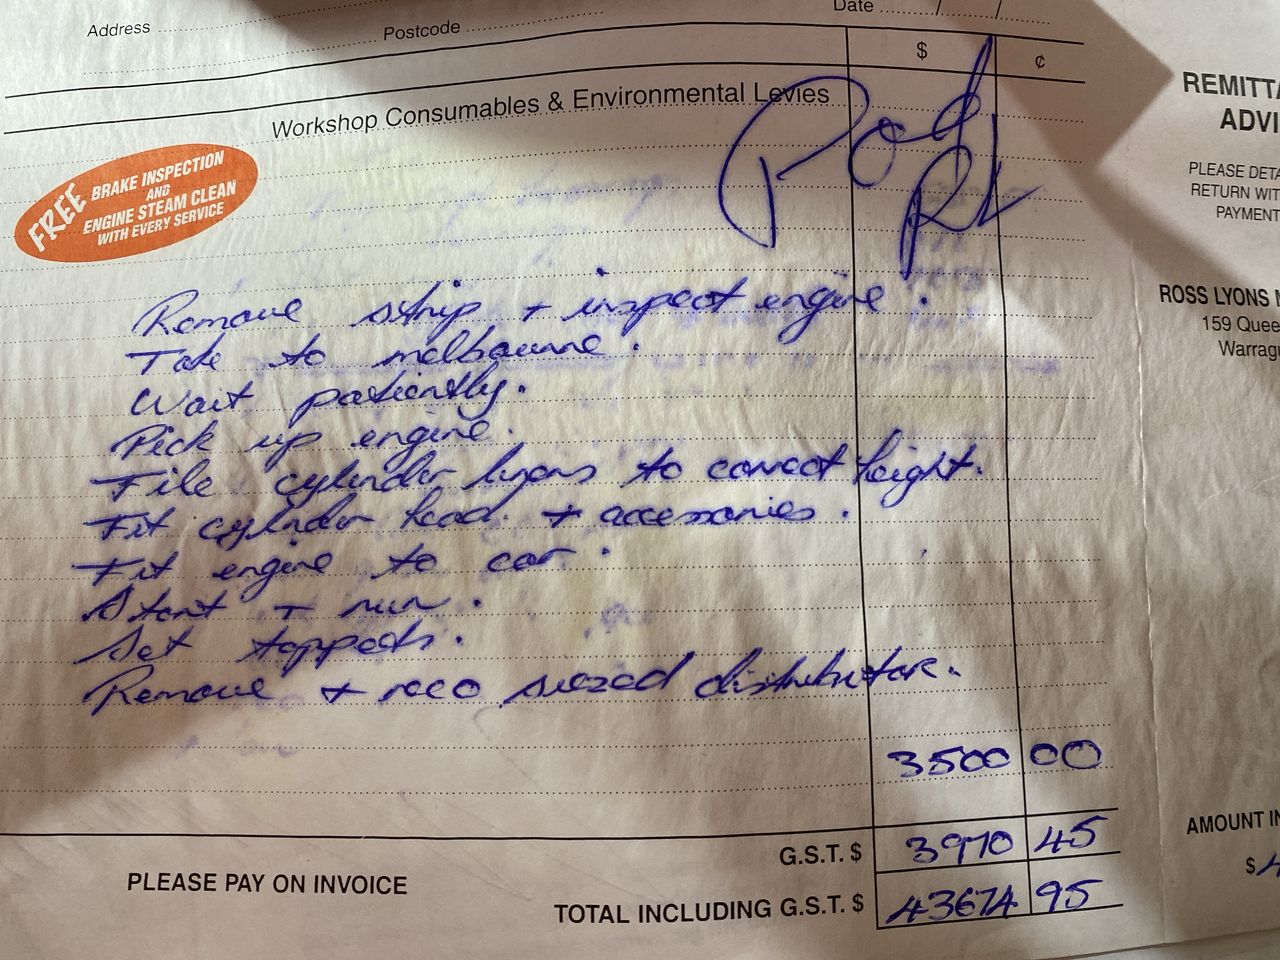 Address Postcode Date / /
$ ¢
Workshop Consumables & Environmental Levies
REMITTA
ADVI
FREE BRAKE INSPECTION
AND
ENGINE STEAM CLEAN
WITH EVERY SERVICE
PLEASE DETA
RETURN WIT
PAYMENT
RL
ROSS LYONS M
159 Quee
Warrag
Remove strip + inspect engine.
Take to melbourne.
Wait patiently.
Pick up engine.
File cylinder lyners to correct height.
Fit cylinder head + accessories.
Fit engine to car.
Start + run.
Set tappets.
Remove + reco siezed distributor.
3500 00
G.S.T. $ 3970 45
PLEASE PAY ON INVOICE
TOTAL INCLUDING G.S.T. $ 43674 95
AMOUNT IN
$4